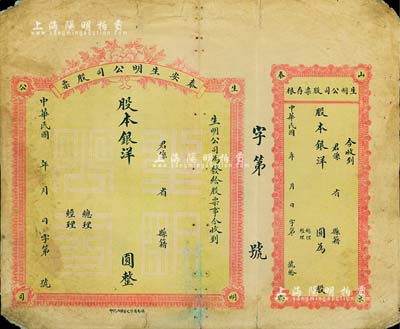 上海阳明拍卖
泰安生明公司股票
生明公司為發給股票事今收到
君係 省 縣籍
股本銀洋 圓整
總理
經理
中華民國 年 月 日字第 號
公
生
司
明
字第 號
泰
山
生明公司股票存根
今收到
君係 省 縣籍
股本銀洋 圓為 股
總理
經理
中華民國 年 月 日 字第 號
上海陽明拍賣